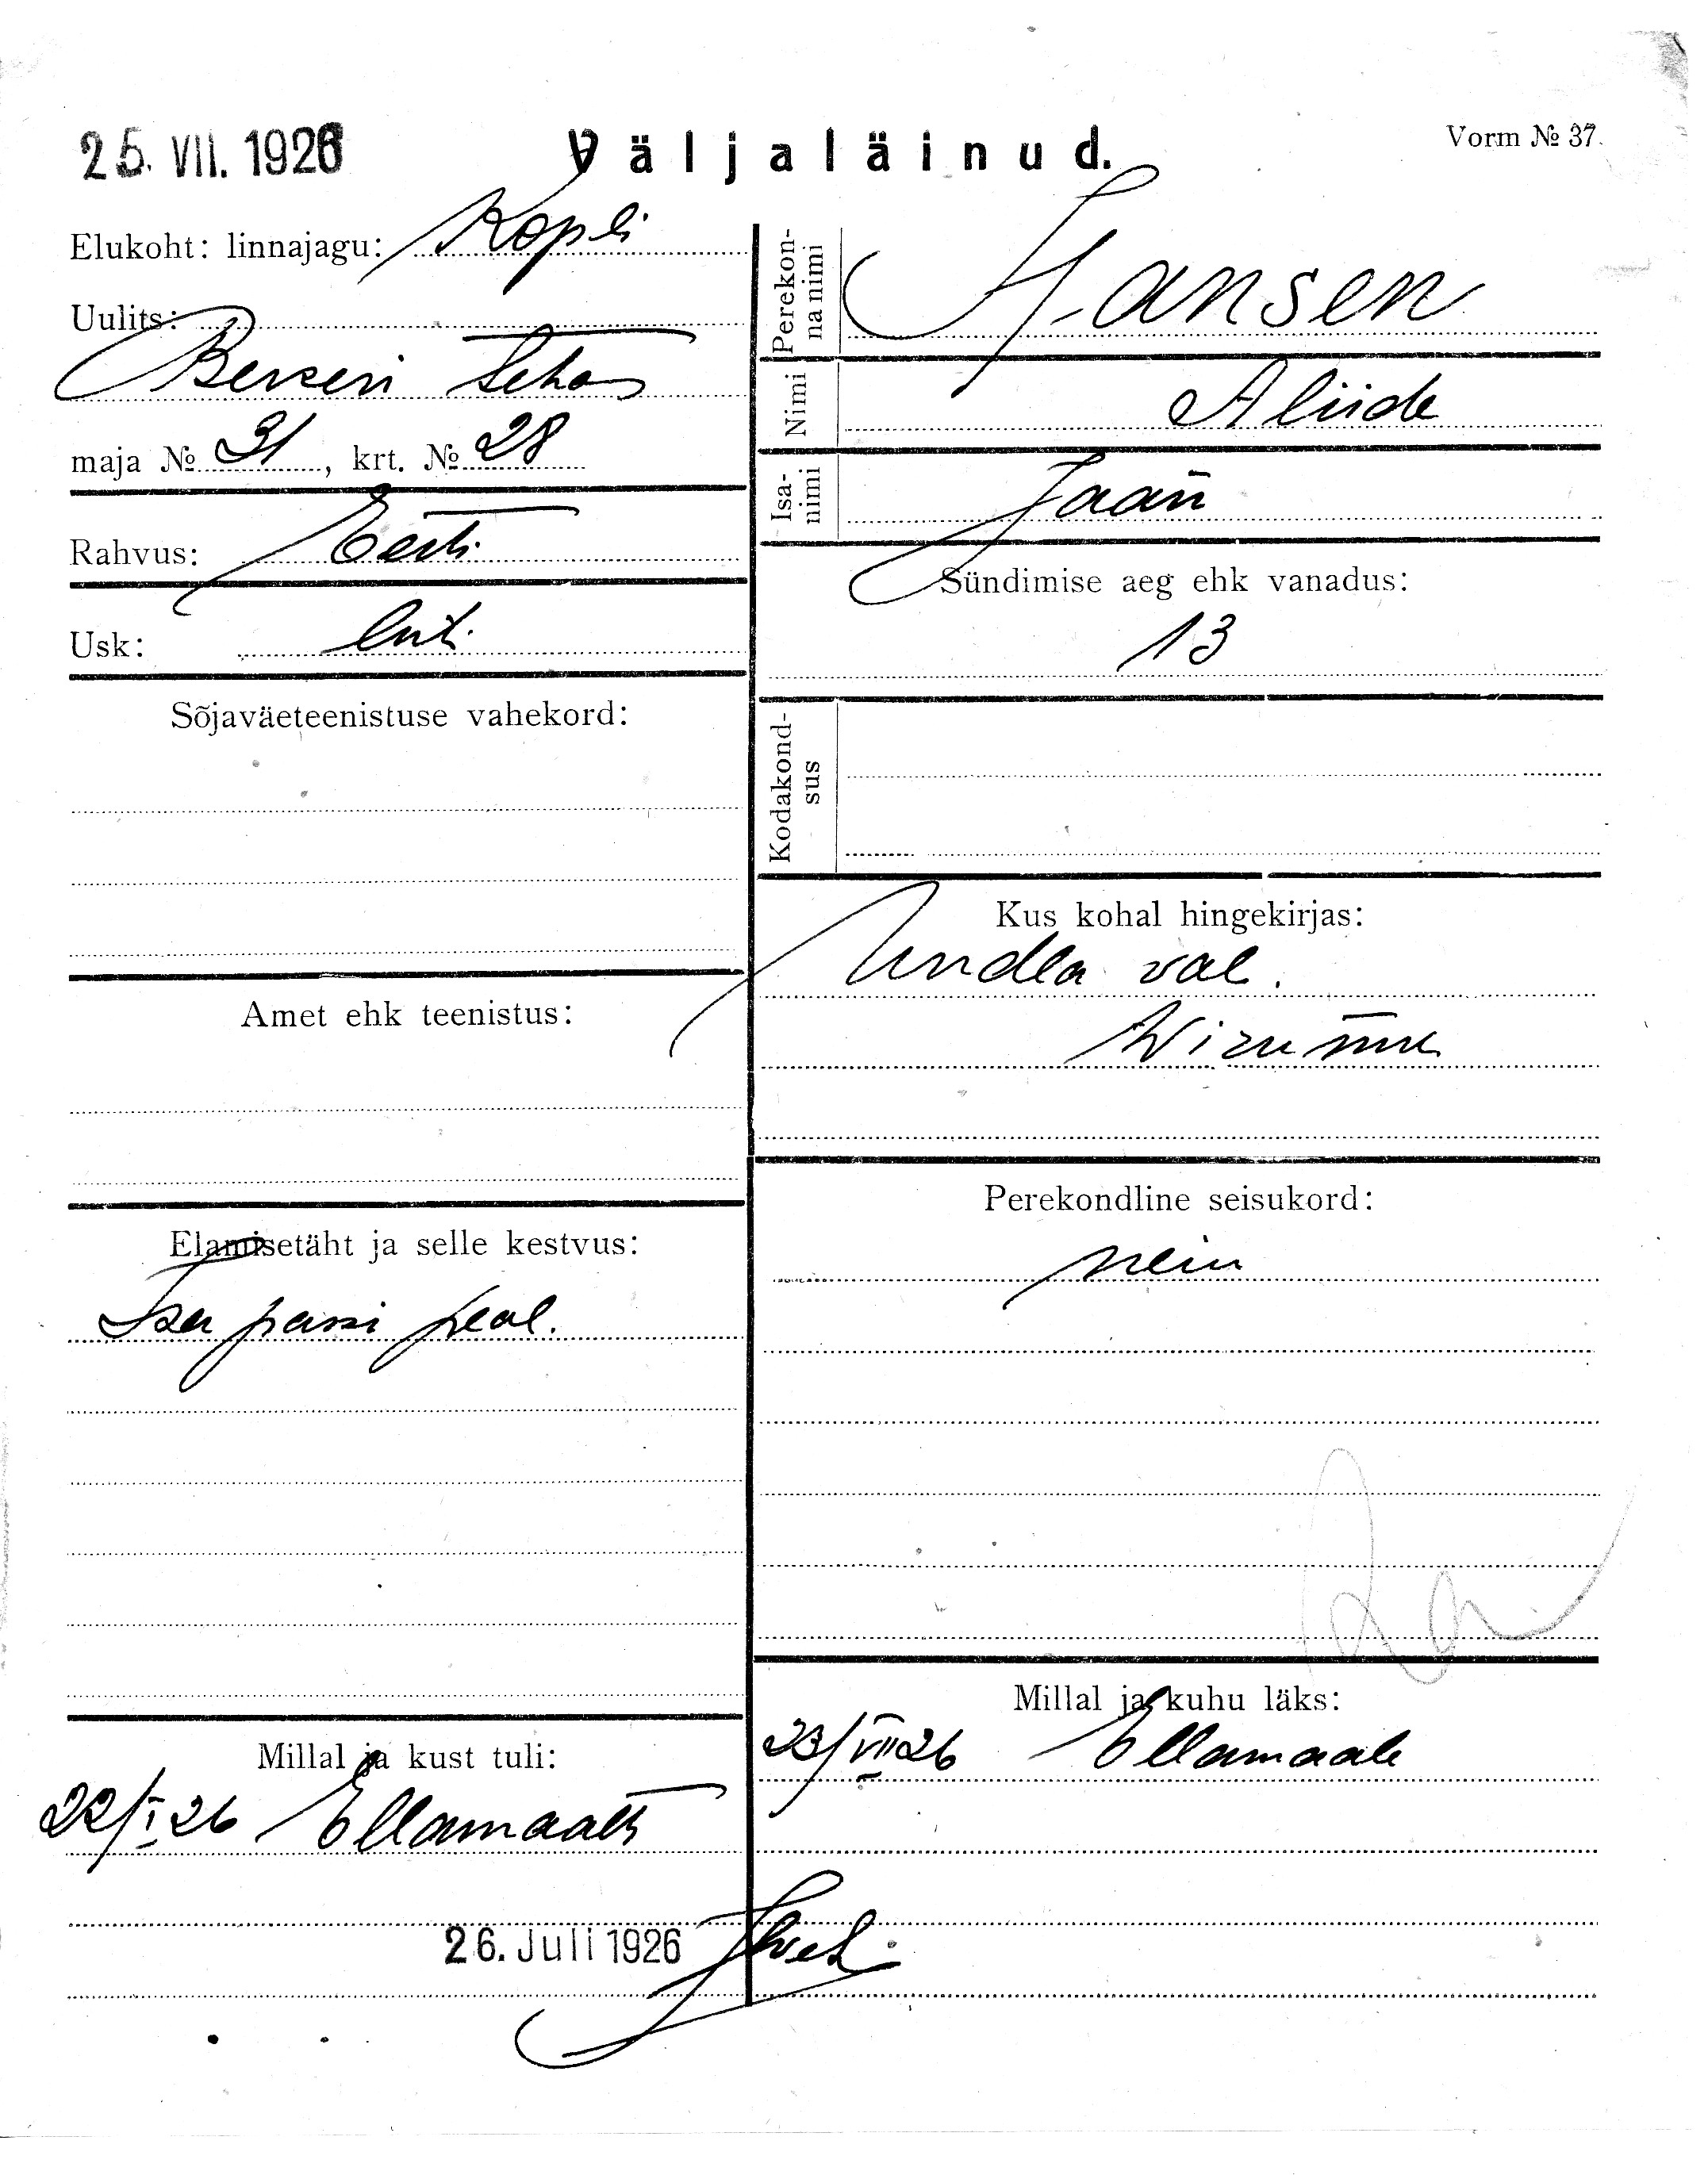 25. VII. 1926
Väljaläinud.
Vorm № 37.
Elukoht: linnajagu: Kopli
Uulits:
Bekeri tehas
maja № 31, krt. № 28
Rahvus: Eesti
Usk: lut.
Sõjaväeteenistuse vahekord:
Amet ehk teenistus:
Elamisetäht ja selle kestvus:
Isa passi peal.
Millal ja kust tuli:
22/I 26 Ellamaalt
26. Juli 1926
Perekonna nimi
Hansen
Nimi
Aliide
Isanimi
Jaan
Sündimise aeg ehk vanadus:
13
Kodakondsus
Kus kohal hingekirjas:
Undla val.
Wirumm
Perekondline seisukord:
Millal ja kuhu läks:
23/VII 26 Ellamaale